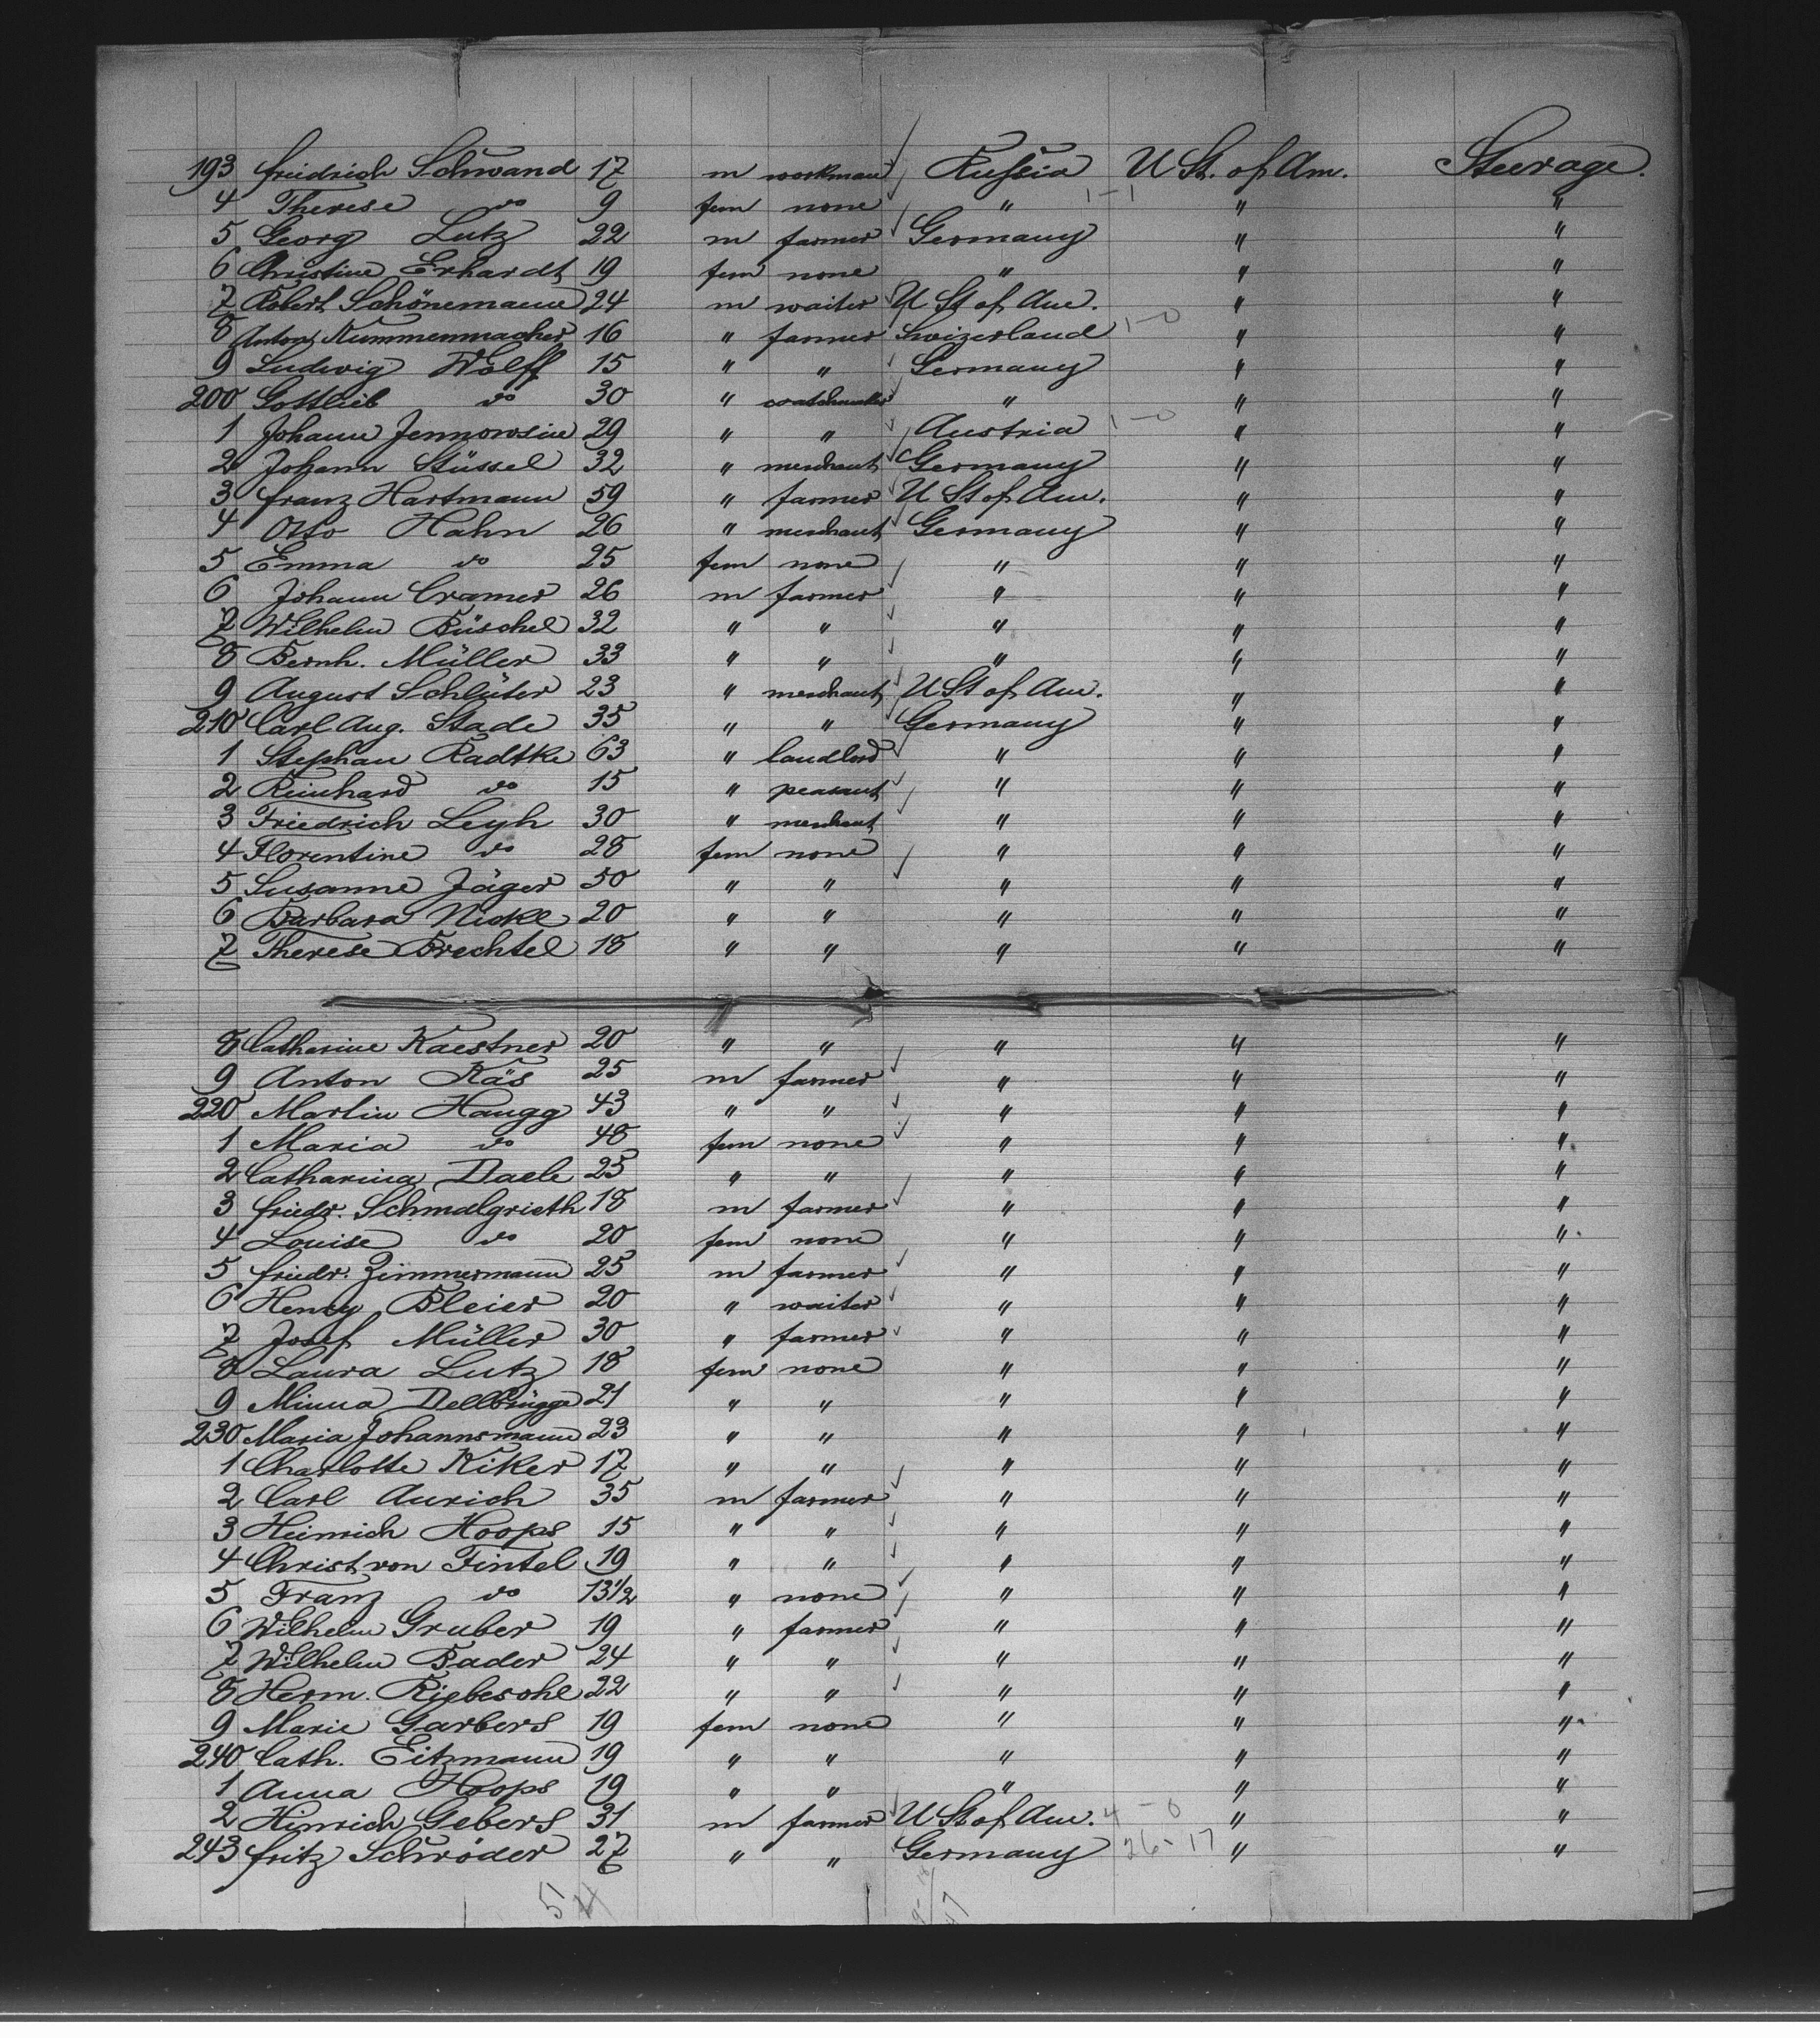 193 Friedrich Schwand 17 m workman Russia U St. of Am. Steerage.
4 Therese do 9 fem none " 1-1 " "
5 Georg Lutz 22 m farmer Germany " "
6 Christine Erhardt 19 fem none " " "
7 Robert Schönemann 24 m waiter U St of Am. " "
8 Anton Kummenmacher 16 " farmer Swizerland 1-0 " "
9 Ludwig Wolff 15 " " Germany " "
200 Gottlieb do 30 " watchmaker " " "
1 Johann Jennowsin 29 " " Austria 1-0 " "
2 Johann Stüssel 32 " merchant Germany " "
3 Franz Hartmann 59 " farmer U St of Am. " "
4 Otto Hahn 26 " merchant Germany " "
5 Emma do 25 fem none " " "
6 Johann Cramer 26 m farmer " " "
7 Wilhelm Büschel 32 " " " " "
8 Bernh. Müller 33 " " " " "
9 August Schlüter 23 " merchant U St of Am. " "
210 Carl Aug. Stade 35 " " Germany " "
1 Stephan Radtke 63 " landlord " " "
2 Reinhard do 15 " peasant " " "
3 Friedrich Leyh 30 " merchant " " "
4 Florentine do 28 fem none " " "
5 Susanne Jäger 50 " " " " "
6 Barbara Nickl 20 " " " " "
7 Therese Brechtel 18 " " " " "
8 Catharine Kaestner 20 " " " " "
9 Anton Käs 25 m farmer " " "
220 Martin Haugg 43 " " " " "
1 Maria do 48 fem none " " "
2 Catharina Daele 25 " " " " "
3 Friedr. Schmalgrieth 18 m farmer " " "
4 Louise do 20 fem none " " "
5 Friedr. Zimmermann 25 m farmer " " "
6 Henry Bleier 20 " waiter " " "
7 Josef Müller 30 " farmer " " "
8 Laura Lutz 18 fem none " " "
9 Minna Dellbrügge 21 " " " " "
230 Maria Johannsmann 23 " " " " "
1 Charlotte Kiker 17 " " " " "
2 Carl Aurich 35 m farmer " " "
3 Heinrich Hoops 15 " " " " "
4 Christ. von Fintel 19 " " " " "
5 Franz do 13 1/2 " none " " "
6 Wilhelm Gruber 19 " farmer " " "
7 Wilhelm Bader 24 " " " " "
8 Herm. Riebesohl 22 " " " " "
9 Marie Garbers 19 fem none " " "
240 Cath. Eitzmann 19 " " " " "
1 Anna Hoops 19 " " " " "
2 Hinrich Gebers 31 m farmer U St of Am. 4-0 " "
243 Fritz Schröder 27 " " Germany 26-17 " "